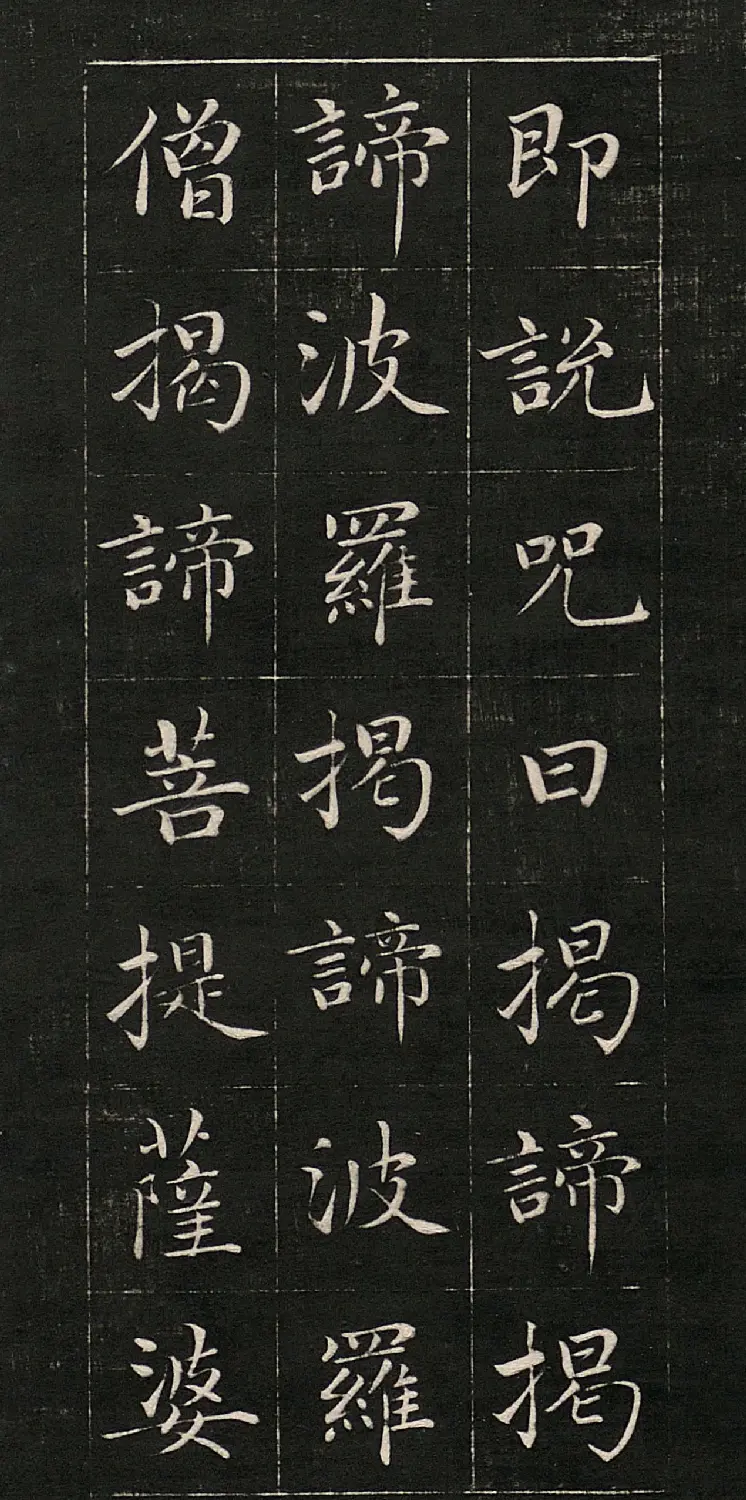 即說咒曰揭諦揭
諦波羅揭諦波羅
僧揭諦菩提薩婆